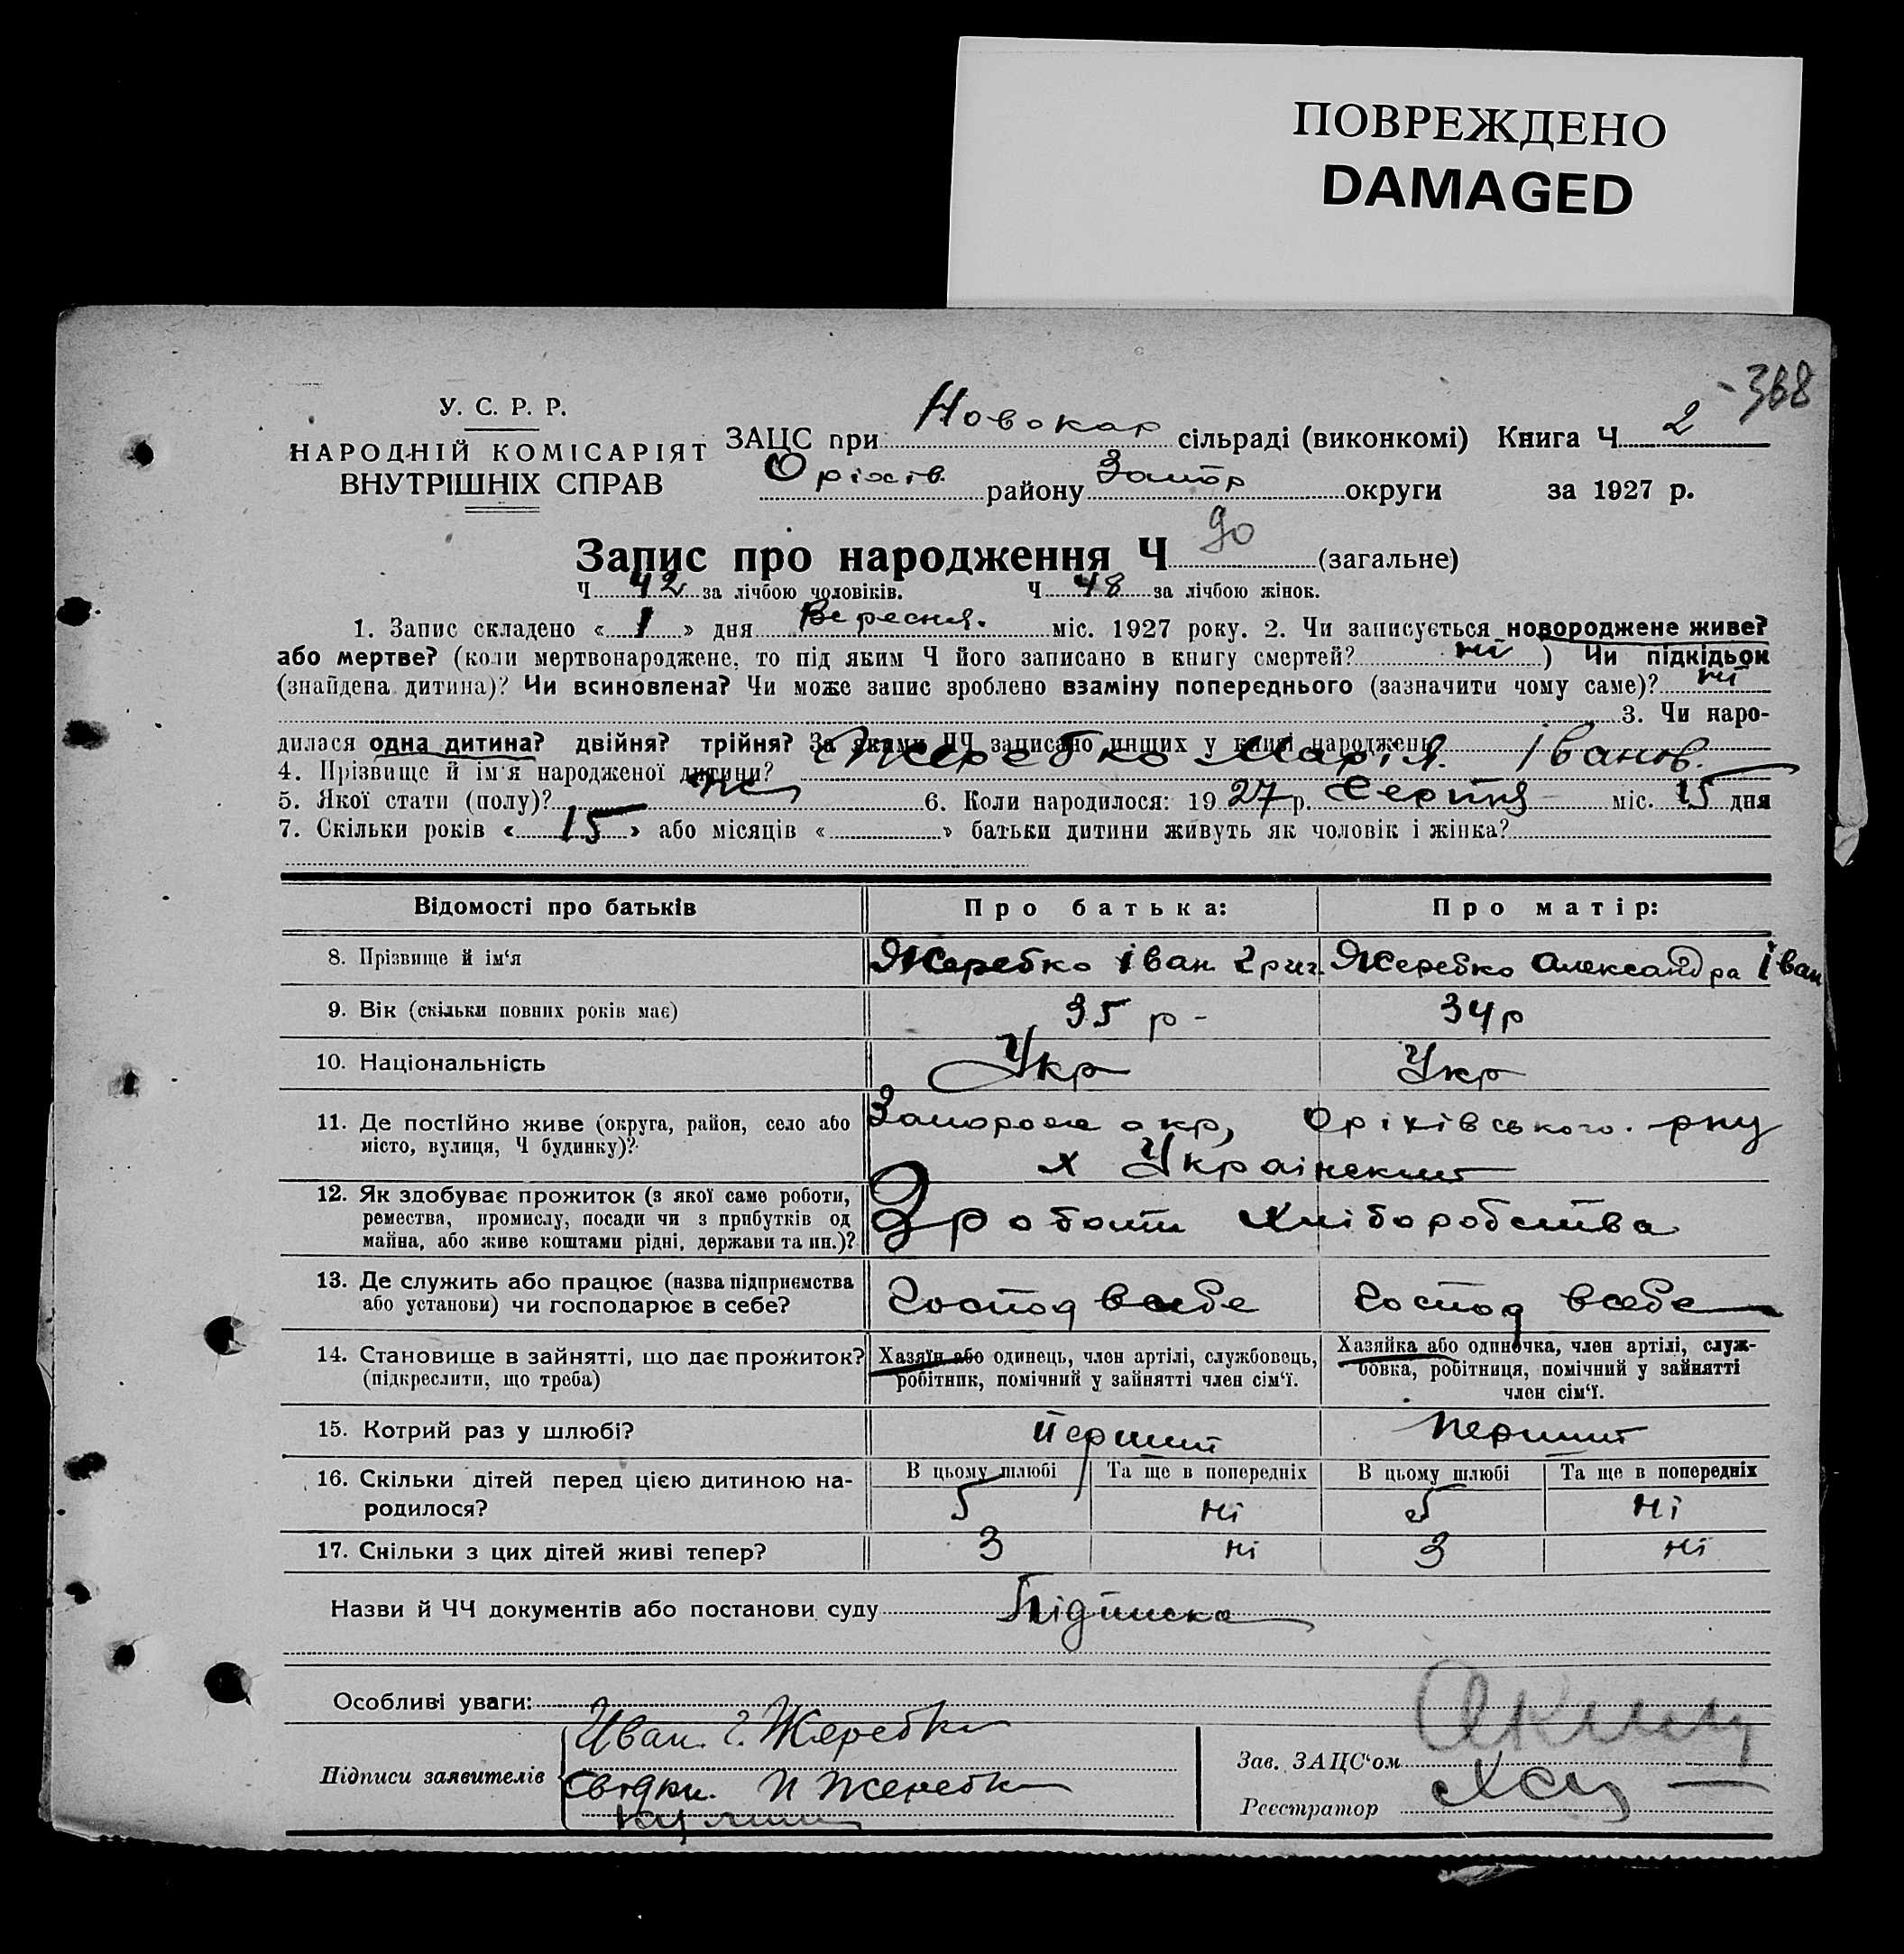 ПОВРЕЖДЕНО
DAMAGED
-368
У. С. Р. Р.
НАРОДНІЙ КОМІСАРІЯТ
ВНУТРІШНІХ СПРАВ
ЗАЦС при Новокар сільраді (виконкомі) Книга Ч 2
Оріхів. району Запор округи за 1927 р.
Запис про народження Ч 90 (загальне)
Ч 42 за лічбою чоловіків. Ч 48 за лічбою жінок.
1. Запис складено « 1 » дня Вересня. міс. 1927 року. 2. Чи записується новороджене живе?
або мертве? (коли мертвонароджене, то під яким Ч його записано в книгу смертей? ні ) Чи підкідьок
(знайдена дитина)? Чи всиновлена? Чи може запис зроблено взаміну попереднього (зазначити чому саме)? ні
3. Чи наро-
дилася одна дитина? двійня? трійня? За якими ЧЧ записано инших у книзі народжень
4. Прізвище й ім'я народженої дитини? Жеребко Марія. Іванів.
5. Якої стати (полу)? ж 6. Коли народилося: 1927 р. Серпня міс. 15 дня
7. Скільки років « 15 » або місяців « » батьки дитини живуть як чоловік і жінка?
Відомості про батьків Про батька: Про матір:
8. Прізвище й ім'я Жеребко Іван Григ. Жеребко Александра Іван
9. Вік (скільки повних років має) 35 р - 34 р
10. Національність Укр Укр
11. Де постійно живе (округа, район, село або Запорож окр, Оріхівського. рну
місто, вулиця, Ч будинку)? х Украінский
12. Як здобуває прожиток (з якої саме роботи,
ремества, промислу, посади чи з прибутків од З роботи хліборобства
майна, або живе коштами рідні, держави та ин.)?
13. Де служить або працює (назва підприємства
або установи) чи господарює в себе? Господ всебе Господ всебе
14. Становище в зайнятті, що дає прожиток? Хазяїн або одинець, член артілі, службовець, Хазяйка або одиночка, член артілі, служ-
(підкреслити, що треба) робітник, помічний у зайнятті член сім'ї. бовка, робітниця, помічний у зайнятті
член сім'ї.
15. Котрий раз у шлюбі? перший перший
16. Скільки дітей перед цією дитиною на- В цьому шлюбі Та ще в попередніх В цьому шлюбі Та ще в попередніх
родилося? 5 ні 5 ні
17. Скільки з цих дітей живі тепер? 3 ні 3 ні
Назви й ЧЧ документів або постанови суду Підписка
Особливі уваги:
Иван. Г. Жеребко
Підписи заявителів Свідки. И Жеребко
Зав. ЗАЦС'ом
Реєстратор